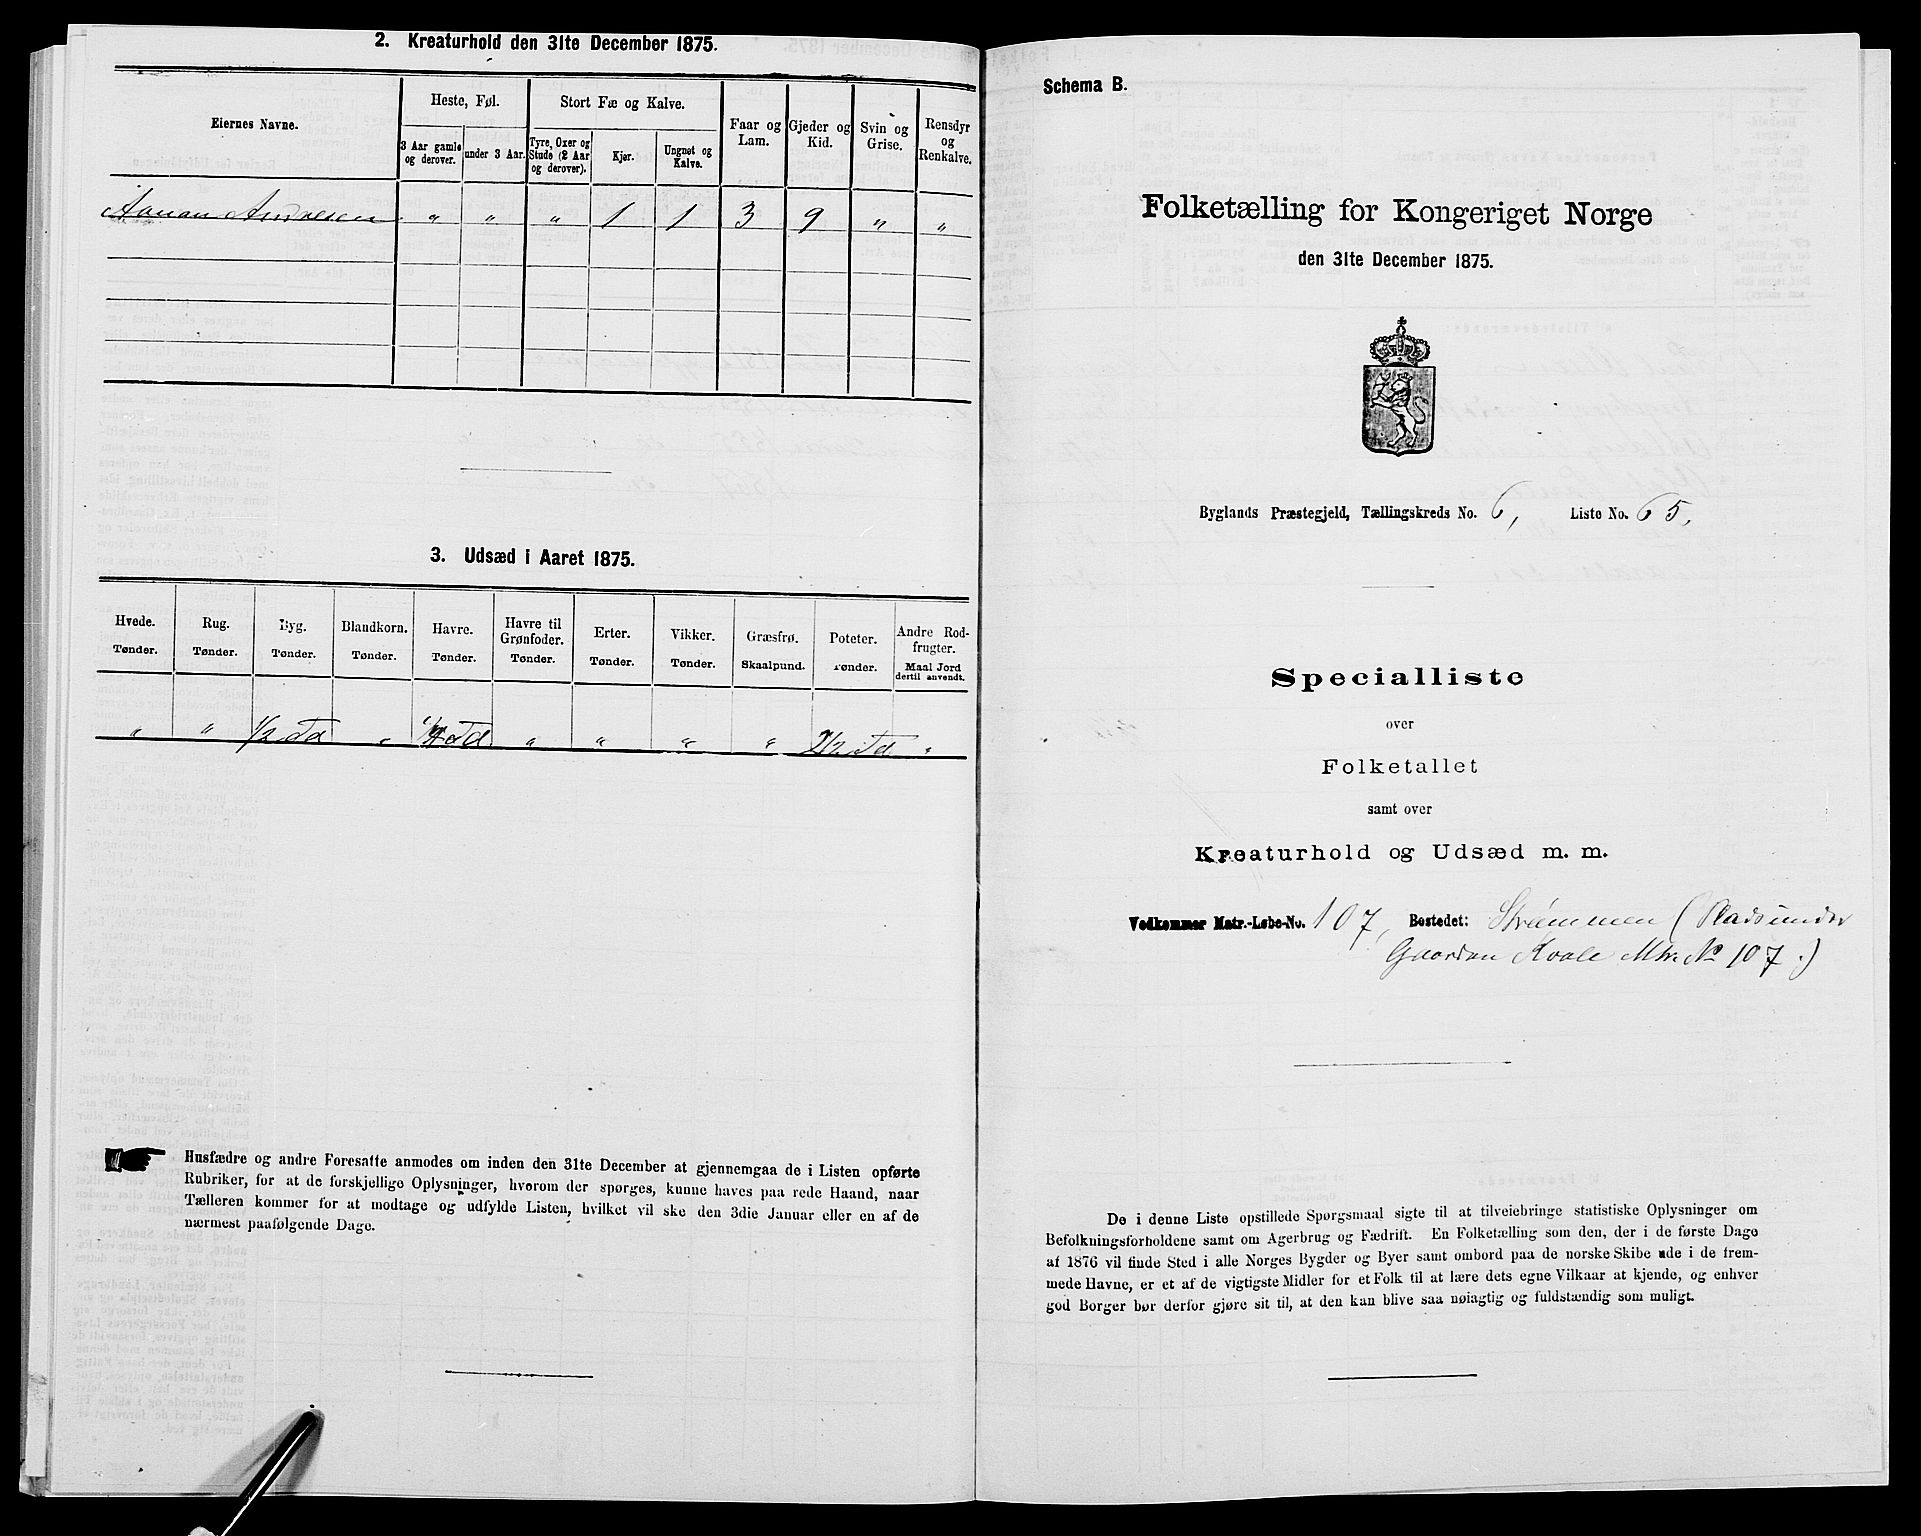 2. Kreaturhold den 31te December 1875.
Eiernes Navne.
Heste, Føl.
3 Aar gamle og derover.
under 3 Aar.
Stort Fæ og Kalve.
Tyre, Oxer og Stude (2 Aar og derover).
Kjør.
Ungnøt og Kalve.
Faar og Lam.
Gjeder og Kid.
Svin og Grise.
Rensdyr og Renkalve.
" " " 1 1 3 9 " "
3. Udsæd i Aaret 1875.
Hvede. Tønder.
Rug. Tønder.
Byg. Tønder.
Blandkorn. Tønder.
Havre. Tønder.
Havre til Grønfoder. Tønder.
Erter. Tønder.
Vikker. Tønder.
Græsfrø. Skaalpund.
Poteter. Tønder.
Andre Rodfrugter. Maal Jord dertil anvendt.
" " 1/2 Td " Td " " " " 2 1/2 Td "
Husfædre og andre Foresatte anmodes om inden den 31te December at gjennemgaa de i Listen opførte
Rubriker, for at de forskjellige Oplysninger, hvorom der spørges, kunne haves paa rede Haand, naar
Tælleren kommer for at modtage og udfylde Listen, hvilket vil ske den 3die Januar eller en af de
nærmest paafølgende Dage.
Schema B.
Folketælling for Kongeriget Norge
den 31te December 1875.
Byglands Præstegjeld, Tællingskreds No. 6, Liste No. 65,
Specialliste
over
Folketallet
samt over
Kreaturhold og Udsæd m. m.
Vedkommer Matr.-Løbe-No. 107, Bostedet: Strømmen (Plads under
Gaarden Kvale Mtr. No 107.)
De i denne Liste opstillede Spørgsmaal sigte til at tilveiebringe statistiske Oplysninger om
Befolkningsforholdene samt om Agerbrug og Fædrift. En Folketælling som den, der i de første Dage
af 1876 vil finde Sted i alle Norges Bygder og Byer samt ombord paa de norske Skibe ude i de frem-
mede Havne, er et af de vigtigste Midler for et Folk til at lære dets egne Vilkaar at kjende, og enhver
god Borger bør derfor gjøre sit til, at den kan blive saa nøiagtig og fuldstændig som muligt.